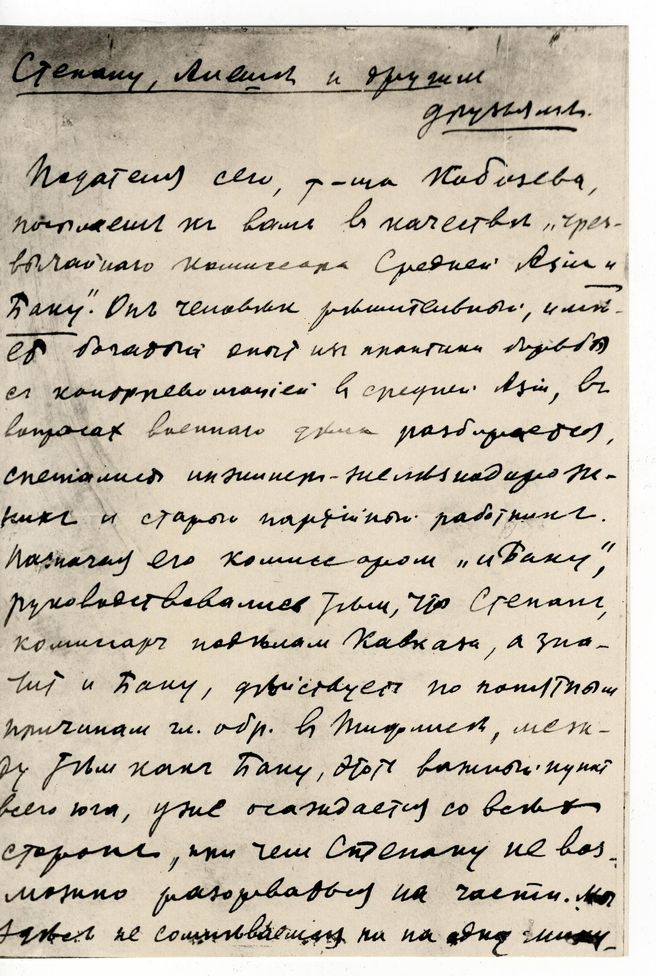 Степану, Алешѣ и другим
друзьямъ.
Подателя сего, т-ща Кобозева,
посылаем къ вамъ въ качествѣ „чрез-
вычайнаго комиссара Средней Азіи и
Баку". Онъ человѣкъ рѣшительный, имѣ-
ет богатый опыт из практики борьбы
съ контрреволюціей въ средней Азіи, въ
вопросах военнаго дѣла разбирается,
спеціалист инженеръ-желѣзнодорож-
никъ и старый партійный работникъ.
Назначая его комиссаром „и Баку",
руководствовались тѣм, что Степанъ,
комиссаръ по дѣлам Кавказа, а зна-
чит и Баку, дѣйствует по понятным
причинам гл. обр. въ Тифлисѣ, меж-
ду тѣм какъ Баку, этот важный пункт
всего юга, уже осаждается со всѣх
сторонъ, при чем Степану не воз-
можно разорваться на части. Мы
здѣсь не сомнѣваемся ни на одну мину-